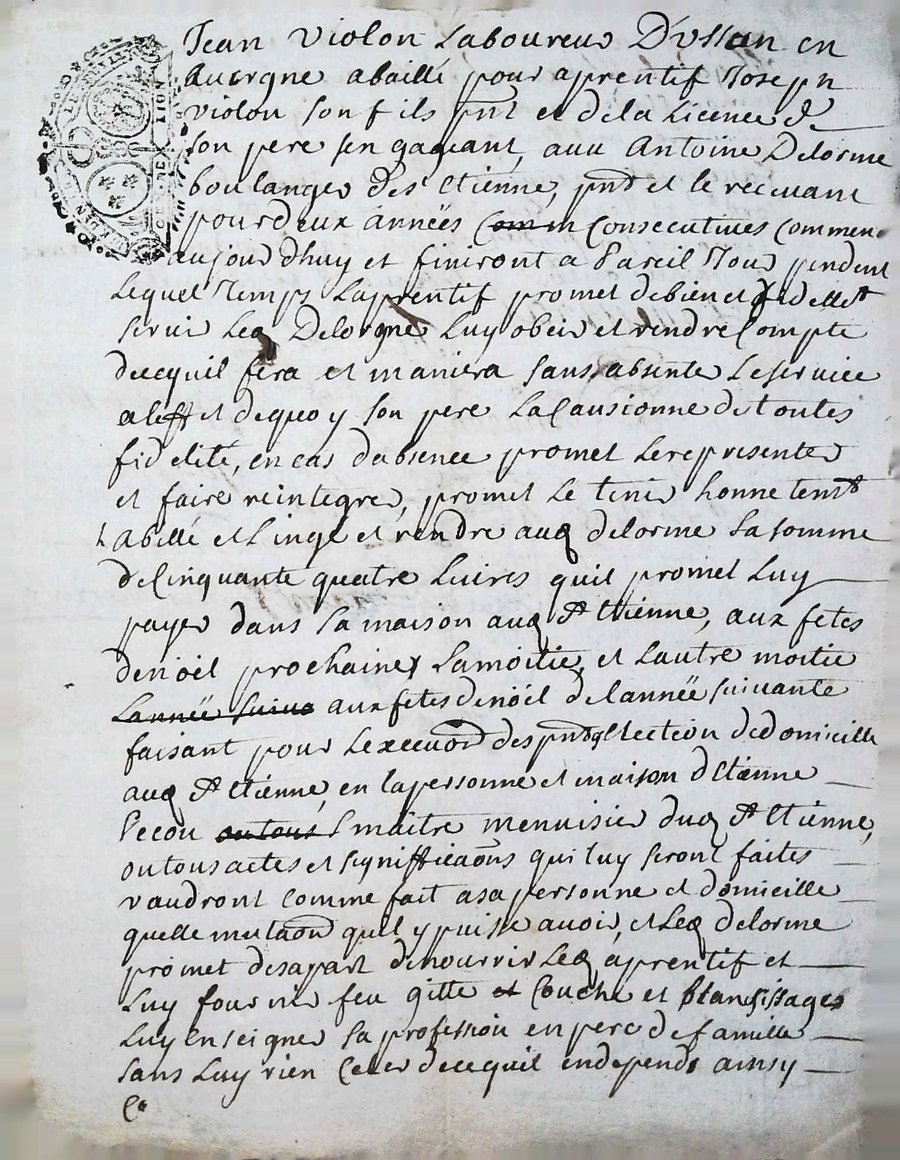 Jean violon Laboureur D'ussan en
auvergne a baillé pour aprentif Joseph
violon son fils pnt et de la Licence de
son pere sen gageant, aud Antoine Delorme
boulanger de st Etienne, pnt et le recevant
pour deux années Com m Consecutives Commen.
aujourdhuy et finiront a Pareil Jour pendent
Lequel Temps Laprentif promet de bien et fidellet
servir Led Delorgne Luy obeir et rendre Compte
de ce quil fera et maniera sans absenter Le service
a leff et de quoy son pere La Causionne de toutes
fidelité, en cas dabsence promet Le representer
et faire reintegrer, promet Le tenir honnetemt
habillé et Linge et rendre aud delorme La somme
de Cinquante quatre Livres quil promet Luy
payer dans sa maison aud st Etienne, aux fetes
de noël prochaines La moitie, et Lautre moitie
Lannéé suiva aux fetes de noël de Lannéé suivante
faisant pour Lexecuon des pntes Election de domicille
aud st Etienne, en la personne et maison dEtienne
Pecou ou tous maitre menuisier dud st Etienne,
ou tous actes et significaons qui luy seront faites
vaudront comme fait a sa personne et domicille
quelle mutaon quil y puisse avoir, et Led delorme
promet de sa part de nourrir Led aprentif et
Luy fournir feu gitte et Couche et blanchissages
Luy enseigner sa profession en pere de famille
sans Luy rien Celer de ce quil en depend ainsy
C.